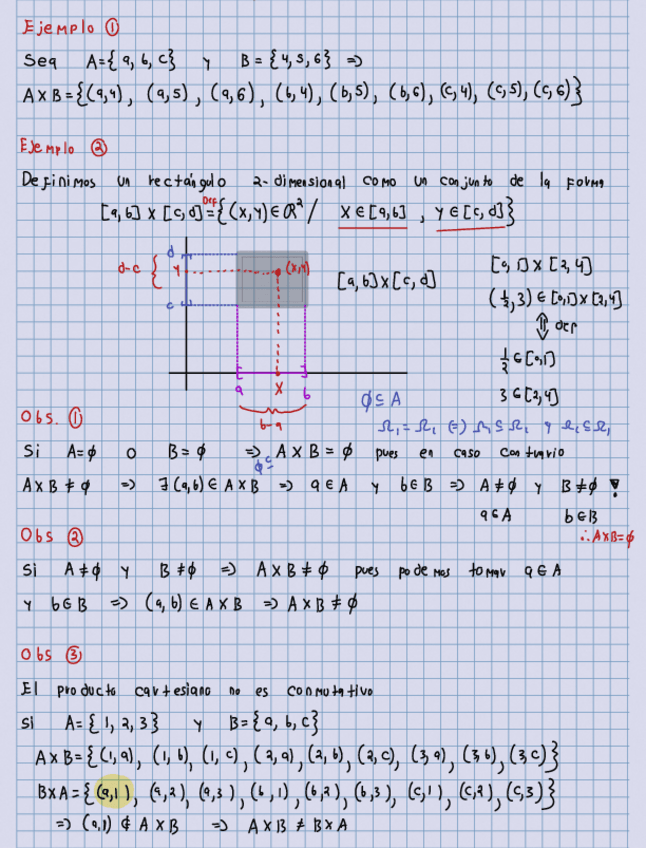 Ejemplo ①
Sea A={a, b, c} y B={4,5,6} ⇒
A×B={(a,4), (a,5), (a,6), (b,4), (b,5), (b,6), (c,4), (c,5), (c,6)}
Ejemplo ②
Definimos un rectángulo 2-dimensional como un conjunto de la forma
[a,b]×[c,d] Def = {(x,y)∈ℝ² / x∈[a,b] , y∈[c,d]}
d
d-c { y (x,y)
c
a x b
b-a
[a,b]×[c,d]
[0,1]×[2,4]
(½,3)∈[0,1]×[2,4]
⇕ def
½∈[0,1]
3∈[2,4]
ϕ⊆A
Obs. ①
Si A=ϕ o B=ϕ ⇒ A×B=ϕ pues en caso contrario
ϕ⊆
A×B≠ϕ ⇒ ∃(a,b)∈A×B ⇒ a∈A y b∈B ⇒ A≠ϕ y B≠ϕ !
a∈A b∈B
∴A×B=ϕ
Obs ②
Si A≠ϕ y B≠ϕ ⇒ A×B≠ϕ pues podemos tomar a∈A
y b∈B ⇒ (a,b)∈A×B ⇒ A×B≠ϕ
Obs ③
El producto cartesiano no es conmutativo
Si A={1,2,3} y B={a,b,c}
A×B={(1,a), (1,b), (1,c), (2,a), (2,b), (2,c), (3,a), (3,b), (3,c)}
B×A={(a,1), (a,2), (a,3), (b,1), (b,2), (b,3), (c,1), (c,2), (c,3)}
⇒ (a,1)∉A×B ⇒ A×B≠B×A